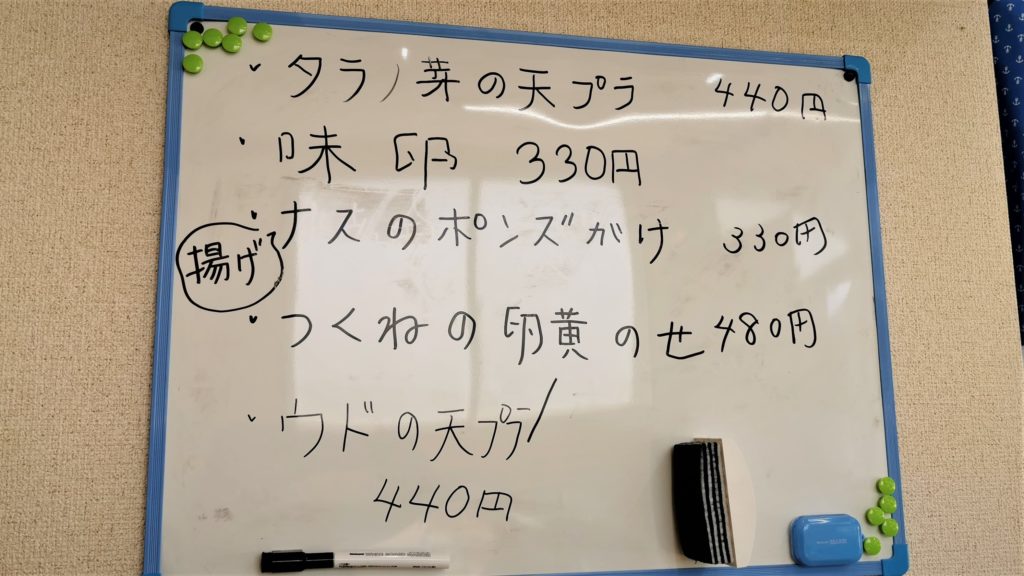 ・タラノ芽の天プラ 440円
・味卵 330円
・ナスのポンズがけ 330円
揚げ
・つくねの卵黄のせ 480円
・ウドの天プラ
440円